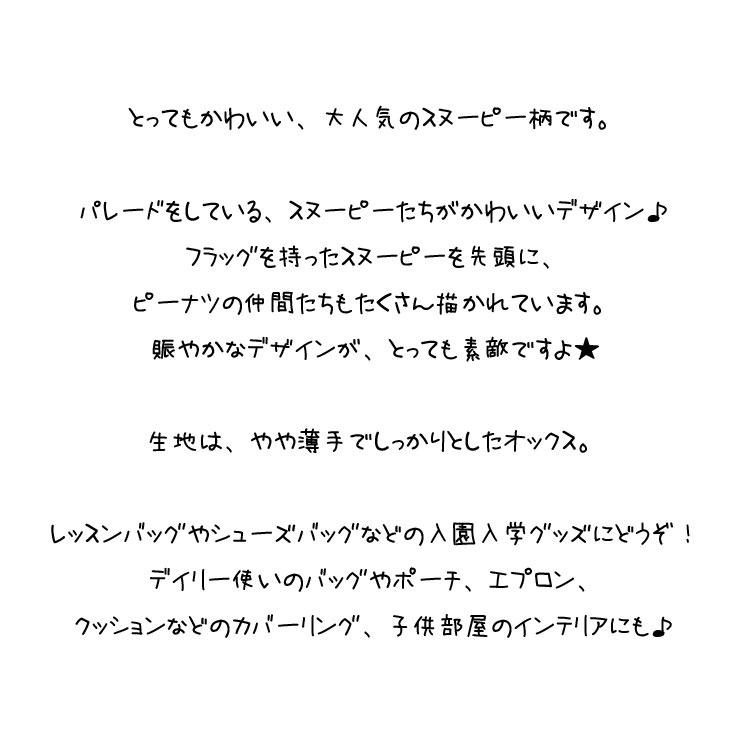 とってもかわいい、大人気のスヌーピー柄です。
パレードをしている、スヌーピーたちがかわいいデザイン♪
フラッグを持ったスヌーピーを先頭に、
ピーナツの仲間たちもたくさん描かれています。
賑やかなデザインが、とっても素敵ですよ★
生地は、やや薄手でしっかりとしたオックス。
レッスンバッグやシューズバッグなどの入園入学グッズにどうぞ！
デイリー使いのバッグやポーチ、エプロン、
クッションなどのカバーリング、子供部屋のインテリアにも♪